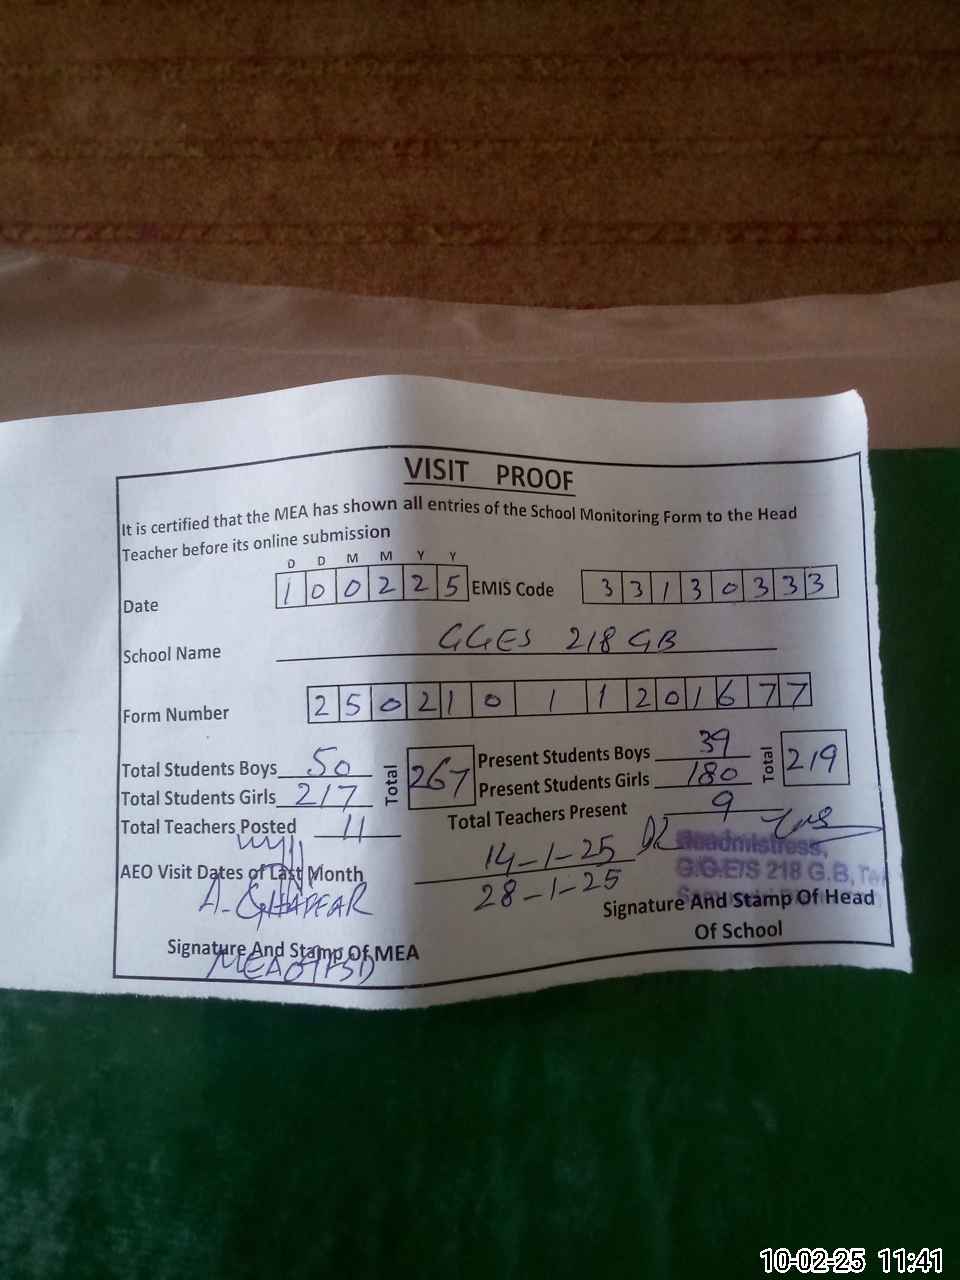 VISIT PROOF
It is certified that the MEA has shown all entries of the School Monitoring Form to the Head
Teacher before its online submission
D D M M Y Y
Date 1 0 0 2 2 5 EMIS Code 3 3 1 3 0 3 3 3
School Name GGES 218 GB
Form Number 2 5 0 2 1 0 1 1 2 0 1 6 7 7
Total Students Boys 50 Total 267 Present Students Boys 39 Total 219
Total Students Girls 217 Present Students Girls 180
Total Teachers Posted 11 Total Teachers Present 9
AEO Visit Dates of Last Month 14-1-25
28-1-25
Headmistress,
G.G.E/S 218 G.B,
A. GHAFFAR
Signature And Stamp Of MEA
Signature And Stamp Of Head
Of School
10-02-25 11:41